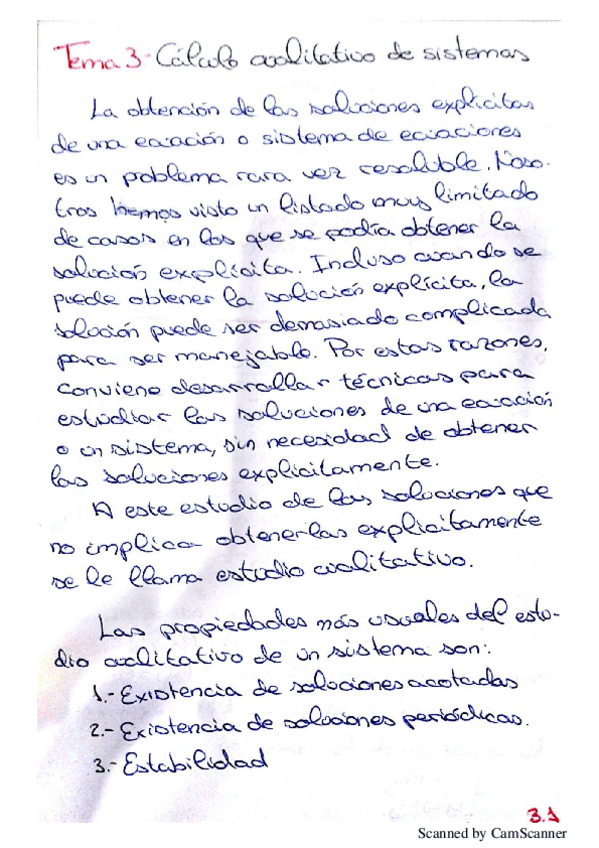 Tema 3- Cálculo cualitativo de sistemas
La obtención de las soluciones explícitas
de una ecuación o sistema de ecuaciones
es un problema rara vez resoluble. Noso-
tros hemos visto un listado muy limitado
de casos en los que se podía obtener la
solución explícita. Incluso cuando se
puede obtener la solución explícita, la
solución puede ser demasiado complicada
para ser manejable. Por estas razones,
conviene desarrollar técnicas para
estudiar las soluciones de una ecuación
o un sistema, sin necesidad de obtener
las soluciones explícitamente.
A este estudio de las soluciones que
no implica obtenerlas explicitamente
se le llama estudio cualitativo.
Las propiedades más usuales del estu-
dio cualitativo de un sistema son:
1.- Existencia de soluciones acotadas
2.- Existencia de soluciones periódicas.
3.- Estabilidad
3.1
Scanned by CamScanner